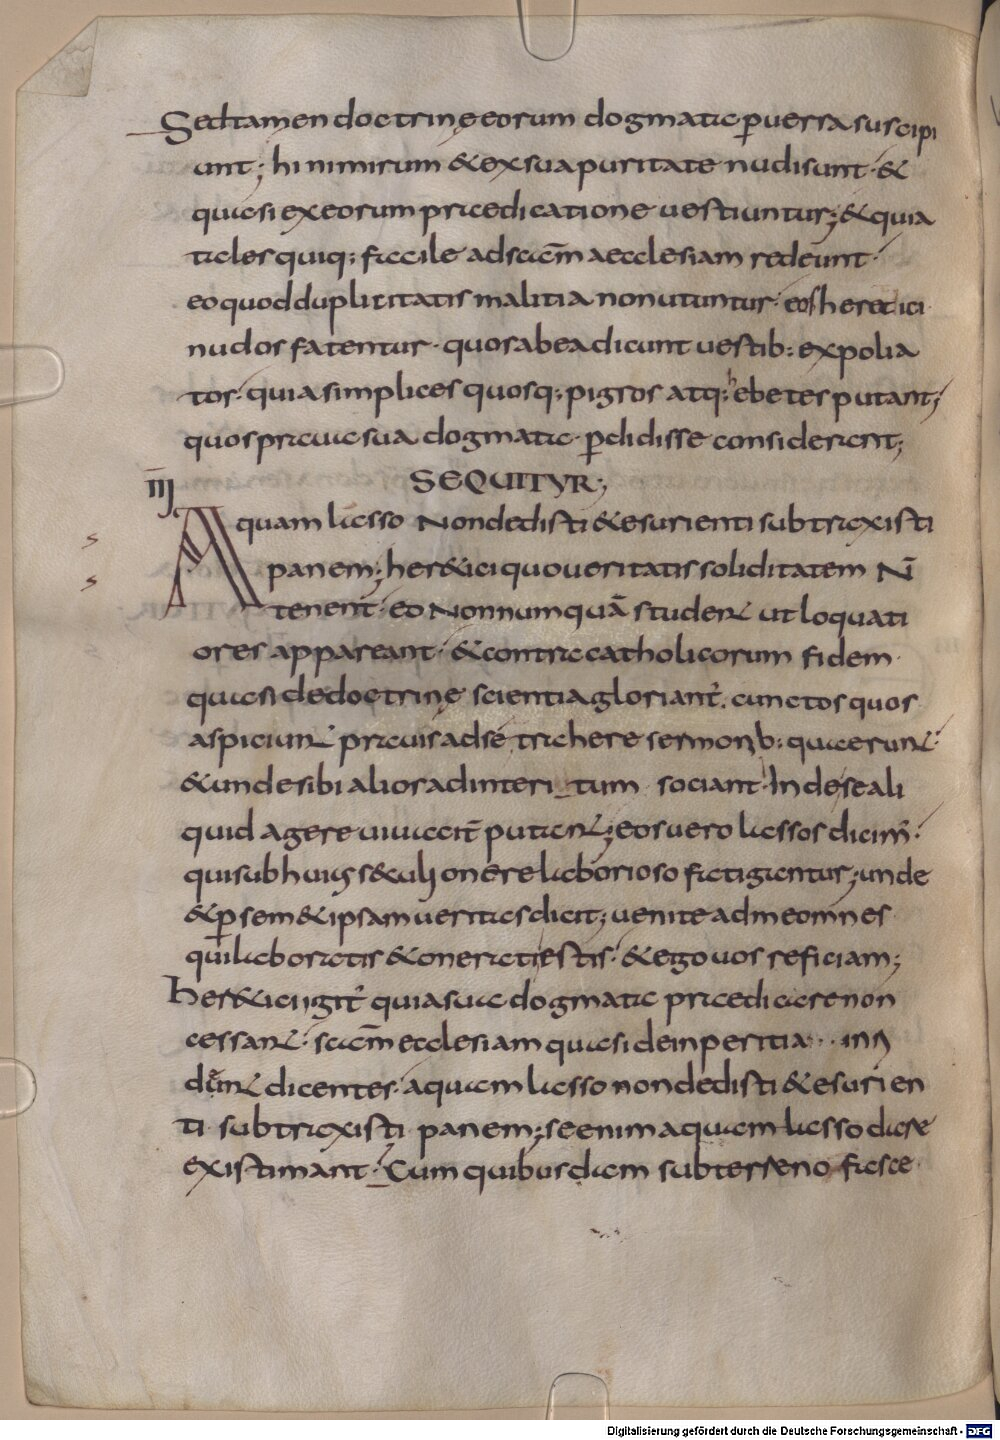 Sed tamen doctrinę eorum dogmata ꝑuersa suscipi
unt; hi nimirum & ex sua puritate nudi sunt· &
quasi ex eorum praedicatione uestiuntur; & quia
tales quiq; facile ad scām aecclesiam redeunt·
eo quod duplicitatis malitia non utuntur· eos heretici
nudos fatentur· quos ab ea dicunt uestib: expolia
tos· quia simplices quosq; pigros atq: hebetes putant;
quos praua sua dogmata· ꝑdidisse considerant;
III SEQUITUR;
Aquam lasso Non dedisti & esurienti subtraxisti
panem; her&ici quo ueritatis soliditatem N̄
tenent· eo Nonnumquā student ut loquati
ores appareant· & contra catholicorum fidem·
quasi de doctrinę scientia gloriant̉· cunctos quos
aspiciunt prauis ad se trahere sermonib: quaerunt·
& unde sibi alios ad interitum sociant· Inde se ali
quid agere uiuacit̄ putant; eos uero lassos dicim̉·
qui sub huiꝰ s&culi onere laborioso fatigantur; unde
& ꝑ sem&ipsam ueritas dicit; uenite ad me omnes
qui laboratis & onerati estis· & ego uos reficiam;
her&ici igit̉ quia sua dogmata praedicare non
cessant· scām ecclesiam quasi de inperitia··· inri
dent dicentes· aquam lasso non dedisti & esurien
ti subtraxisti panem; se enim aquam lasso dare
existimant· Cum quibusdam subterreno fasce
Digitalisierung gefördert durch die Deutsche Forschungsgemeinschaft - DFG